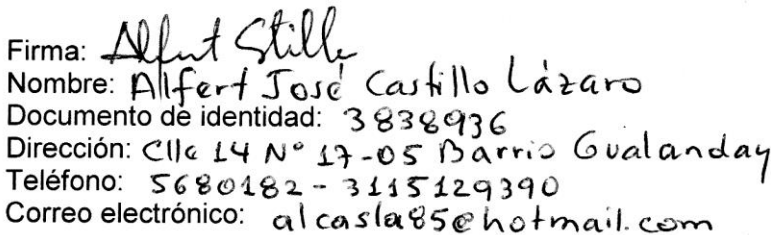 Firma: Alfert Stille
Nombre: Alfert José Castillo Lázaro
Documento de identidad: 3838936
Dirección: Clle 14 N° 17-05 Barrio Gualanday
Teléfono: 5680182 - 3115129390
Correo electrónico: alcasla85@hotmail.com